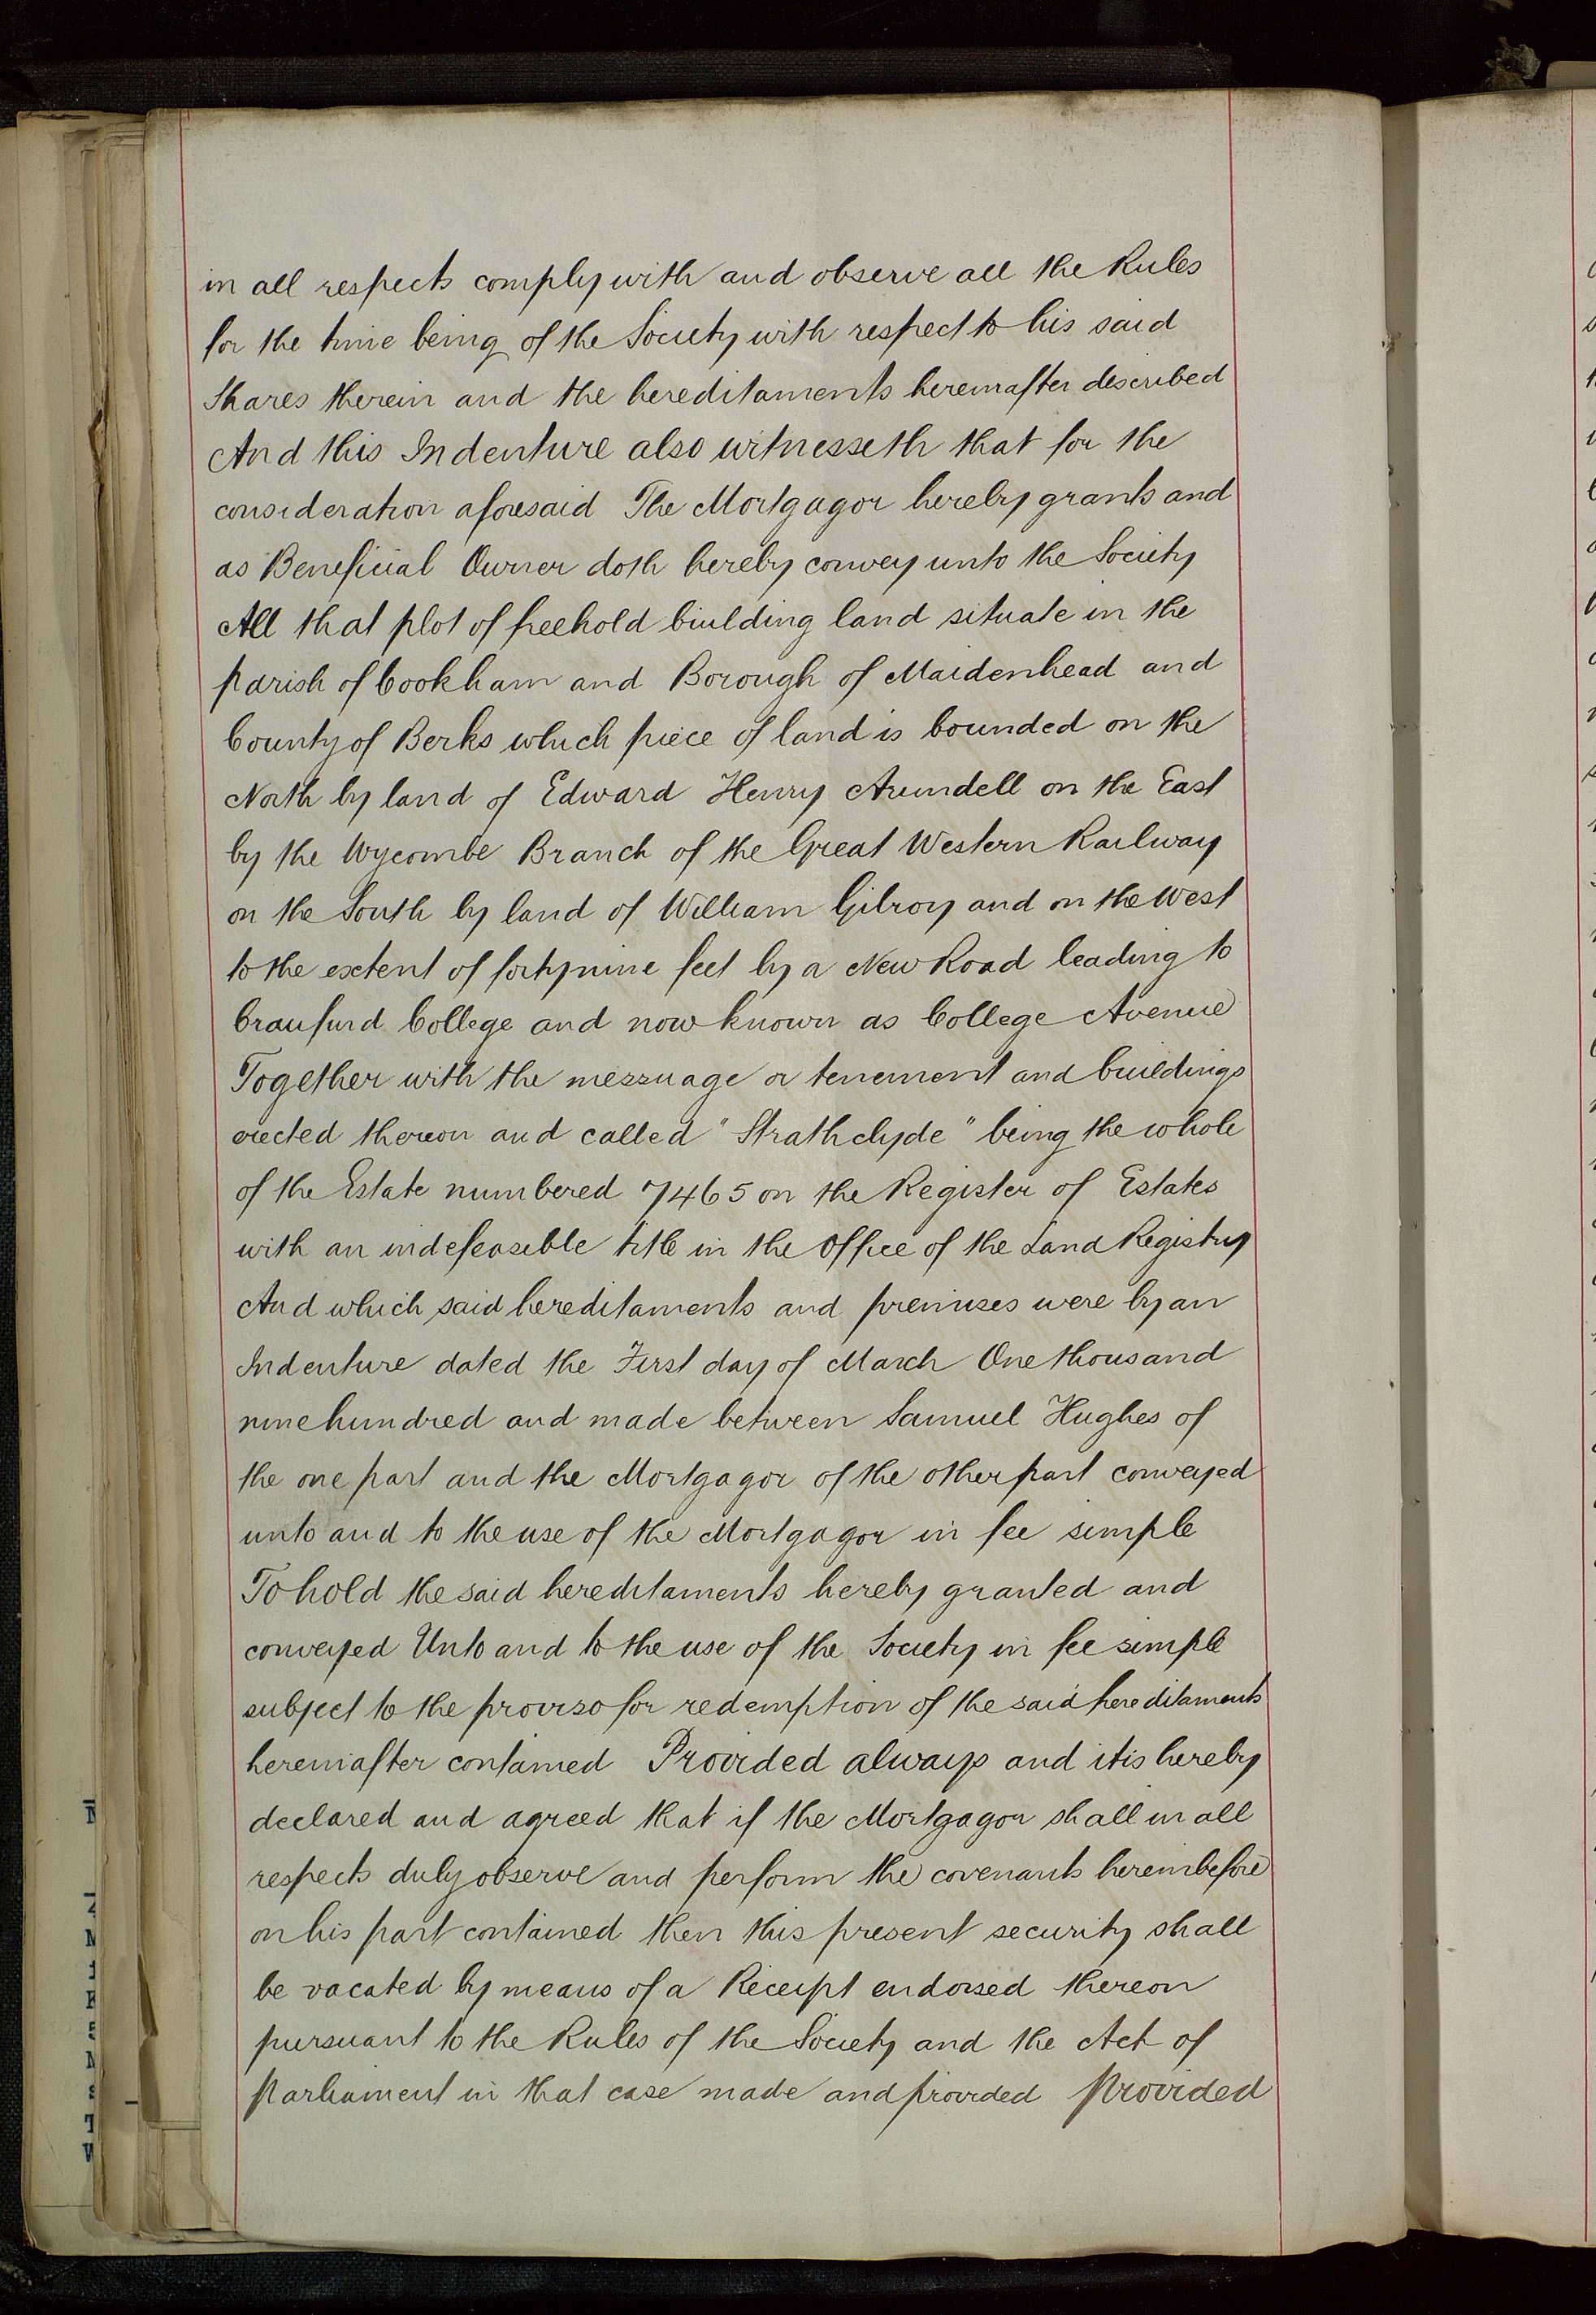 in all respects comply with and observe all the Rules
for the time being of the Society with respect to his said
Shares therein and the hereditaments hereinafter described
And this Indenture also witnesseth that for the
consideration aforesaid The Mortgagor hereby grants and
as Beneficial Owner doth hereby convey unto the Society
All that plot of freehold building land situate in the
parish of Cookham and Borough of Maidenhead and
County of Berks which piece of land is bounded on the
North by land of Edward Henry Arundell on the East
by the Wycombe Branch of the Great Western Railway
on the South by land of William Gilroy and on the West
to the extent of forty nine feet by a New Road leading to
Craufurd College and now known as College Avenue
Together with the messuage or tenement and buildings
erected thereon and called "Strathclyde" being the whole
of the Estate numbered 7465 on the Register of Estates
with an indefeasible title in the Office of the Land Registry
And which said hereditaments and premises were by an
Indenture dated the First day of March One thousand
nine hundred and made between Samuel Hughes of
the one part and the Mortgagor of the other part conveyed
unto and to the use of the Mortgagor in fee simple
To hold the said hereditaments hereby granted and
conveyed Unto and to the use of the Society in fee simple
subject to the proviso for redemption of the said hereditaments
hereinafter contained Provided always and it is hereby
declared and agreed that if the Mortgagor shall in all
respects duly observe and perform the covenants hereinbefore
on his part contained then this present security shall
be vacated by means of a Receipt endorsed thereon
pursuant to the Rules of the Society and the Act of
Parliament in that case made and provided Provided